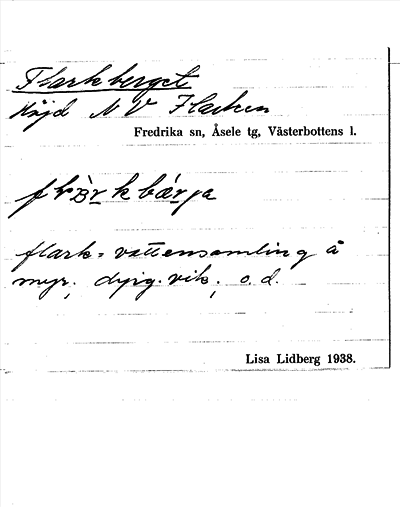 Flarkberget
Höjd N V Flarken
Fredrika sn, Åsele tg, Västerbottens l.
flark = vattensamling å
myr; dyig vik, o. d.
Lisa Lidberg 1938.